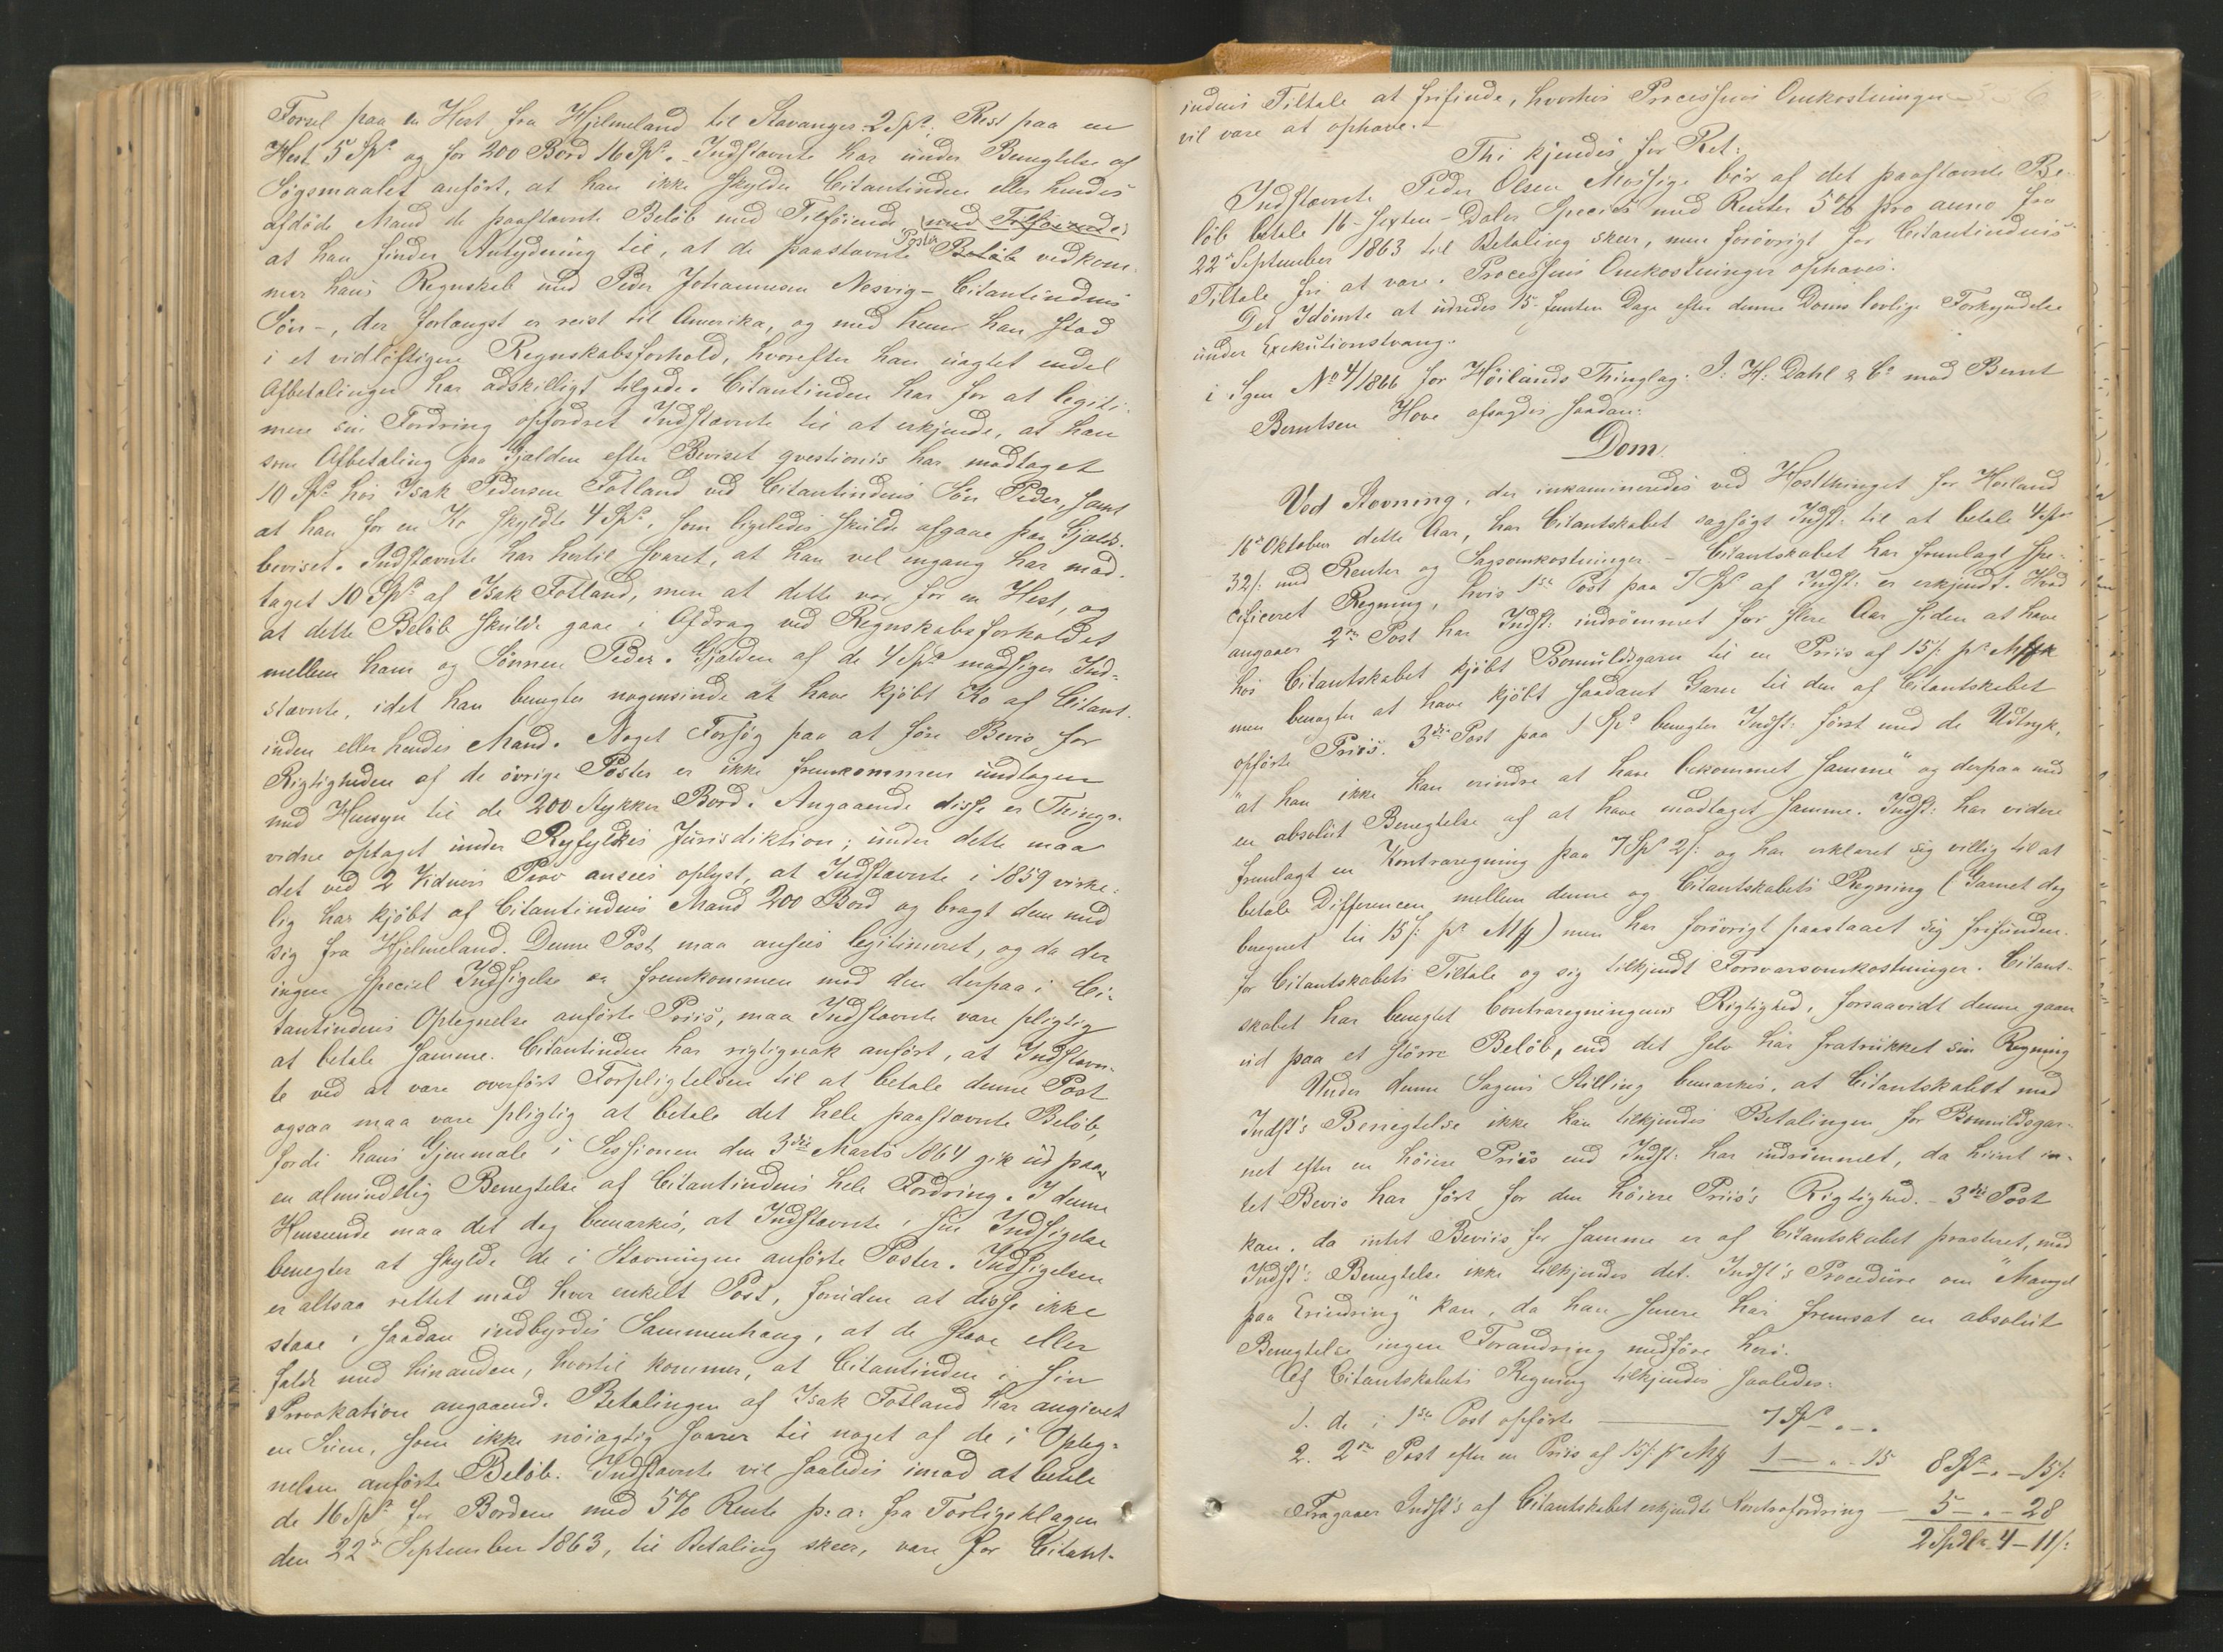 Forsel paa en Hest fra Hjelmeland til Stavanger 2 Spd. Rest paa en
Hest 5 Spd. og for 200 Bord 16 Spd. Indstævnte har under Benegtelse af
Sigsmaalet anført, at han ikke skylder Citantinden eller hendes
afdøde Mand de paastævnte Beløb med Tilføiende med Tilføiende
at han finder Antydning til, at de paastævnte Poster Beløb vedkom-
mer hans Regnskab med Peder Johannesen Nesvig – Citantindens
Søn –, der forlængst er reist til Amerika, og med hvem han stod
i et vidløftigere Regnskabsforhold, hvorefter han uagtet endel
Afbetalinger har adskilligt tilgode. Citantinden har for at legiti-
mere sin Fordring opfordret Indstævnte til at erkjende, at han
som Afbetaling paa Gjælden efter Beviset qvestionis har modtaget
10 Spd. hos Isak Pedersen Fotland ved Citantindens Søn Peder, samt
at han for en Ko skyldte 4 Spd., som ligeledes skulde afgaae paa Gjælds-
beviset. Indstævnte har hertil svaret, at han vel engang har mod-
taget 10 Spd. af Isak Fotland, men at dette var for en Hest, og
at dette Beløb skulde gaae i Afdrag ved Regnskabsforholdet
mellem ham og Sønnen Peder. Gjælden af de 4 Spd. modsiger Ind-
stævnte, idet han benegter nogensinde at have kjøbt Ko af Citant-
inden eller hendes Mand. Noget Forsøg paa at føre Bevis for
Rigtigheden af de øvrige Poster er ikke fremkommen undtagen
med Hensyn til de 200 Stykker Bord. Angaaende disse er Things-
vidne optaget under Ryfylkes Jurisdiktion; under dette maa
det ved 2 Vidners Prov ansees oplyst, at Indstævnte i 1859 virke-
lig har kjøbt af Citantindens Mand 200 Bord og bragt dem med
sig fra Hjelmeland. Denne Post maa ansees legitimeret, og da der
ingen speciel Indsigelse er fremkommen mod den derpaa i Ci-
tantindens Optegnelse anførte Priis, maa Indstævnte være pligtig
at betale samme. Citantinden har rigtignok anført, at Indstævn-
te ved at være overført Forpligtelsen til at betale denne Post
ogsaa maa være pligtig at betale det hele paastævnte Beløb,
fordi hans Gjenmæle i Sessionen den 3die Marts 1864 gik ud paa
en almindelig Benegtelse af Citantindens hele Fordring. I denne
Henseende maa det dog bemærkes, at Indstævnte i sin Indsigelse
benegter at skylde de i Stævningen anførte Poster. Indsigelsen
er altsaa rettet mod hver enkelt Post, foruden at disse ikke
staae i saadan indbyrdes Sammenhæng, at de staae eller
falde med hinanden, hvortil kommer, at Citantinden i sin
Provokation angaaende Betalingen af Isak Fotland har angivet
en Sum, som ikke nøiagtig svarer til noget af de i Opteg-
nelsen anførte Beløb. Indstævnte vil saaledes imod at betale
de 16 Spd. for Bordene med 5% Rente p: a: fra Forligsklagen
den 22de September 1863, til Betaling skeer, være for Citant-
indens Tiltale at frifinde, hvorhos Processens Omkostninger
vil være at ophæve.
Thi kjendes for Ret:
Indstævnte Peder Olsen Mossige bør af det paastævnte Be-
løb betale 16 – Sexten – Daler Species med Renter 5% pro anno fra
22de September 1863 til Betaling skeer, men forøvrigt for Citantindens
Tiltale fri at være. Processens Omkostninger ophæves.
Det Idømte at udredes 15 – femten Dage efter denne Doms lovlige Forkyndelse
under Exekutionstvang.
i Sgen No 4/1866 for Høilands Thinglag: I: H: Dahl & Co mod Bernt
Berntsen Hove afsagdes saadan:
Dom.
Ved Stævning, der inkamineredes ved Høstthinget for Høiland
16de Oktober dette Aar, har Citantskabet sagsøgt Indst: til at betale 4 Spd
32 ſ: med Renter og Sagsomkostninger. – Citantskabet har fremlagt spe-
cificeret Regning, hvis 1ste Post paa 7 Spd af Indst: er erkjendt. Hvad
angaaer 2den Post har Indst: indrømmet for flere Aar siden at have
hos Citantskabet kjøbt Bomuldsgarn til en Priis af 15 ſ: pr
men benegter at have kjøbt saadant Garn til den af Citantskabet
opførte Priis. 3die Post paa 1 Spd benegter Indst: først med de Udtryk,
"at han ikke kan erindre at have bekommet samme" og derpaa med
en absolut Benegtelse af at have modtaget samme. Indst: har videre
fremlagt en Kontraregning paa 7 Spd 2 ſ: og har erklæret sig villig til at
betale Differencen mellem denne og Citantskabets Regning (Garnet dog
beregnet til 15 ſ: pr ) men har forøvrigt paastaaet sig frifunden
for Citantskabets Tiltale og sig tilkjendt Forsvarsomkostninger. Citant-
skabet har benegtet Contraregningens Rigtighed, forsaavidt denne gaaer
ud paa et større Beløb, end det selv har fratrukket sin Regning
Under denne Sagens Stilling bemærkes, at Citantskabet mod
Indst's Benegtelse ikke kan tilkjendes Betalingen for Bomuldsgar-
net efter en høiere Priis end Indst: har indrømmet, da hiint in-
tet Bevis har ført for den høiere Priis's Rigtighed. – 3die Post
kan, da intet Beviis for samme er af Citantskabet præsteret, mod
Indst's Benegtelse ikke tilkjendes det. Indst's Procedure om "Mangel
paa Erindring" kan, da han senere har fremsat en absolut
Benegtelse ingen Forandring medføre heri.
Af Citantskabets Regning tilkjendes saaledes:
1. de i 1ste Post opførte — 7 Spd „ – „
2. 2den Post efter en Priis af 15 ſ: pr 1 — „ – 15 8 Spd – „ – 15 ſ:
Fragaaer Indst's af Citantskabet erkjendte Kontrafordring — 5 – „ – 28
2 Spdlr 4 – 11 ſ: